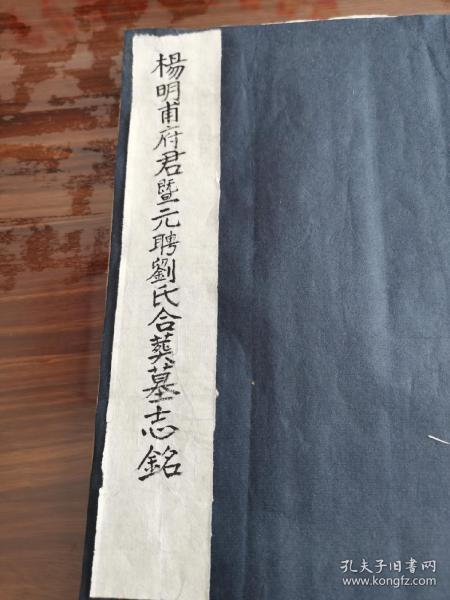 楊明甫府君暨元聘劉氏合葬墓志銘
孔夫子旧书网
www.kongfz.com